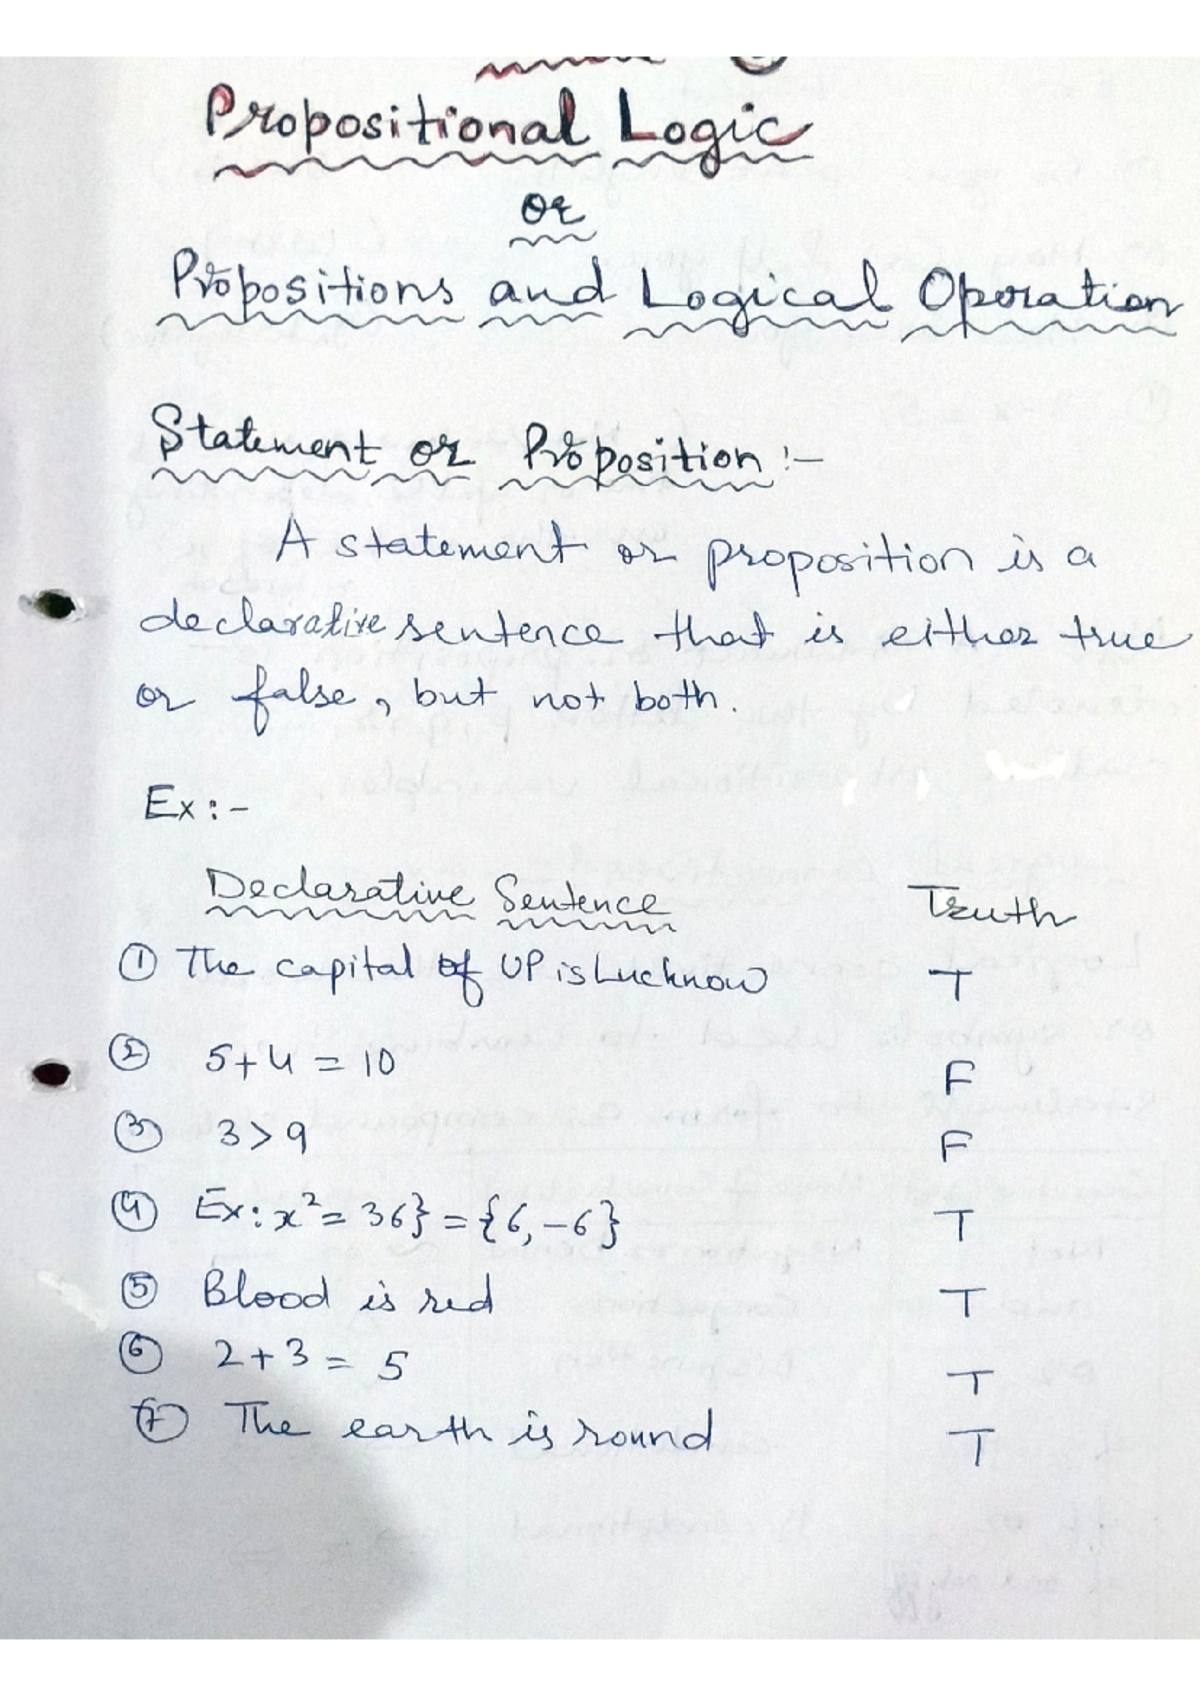 Propositional Logic
or
Propositions and Logical Operation
Statement or Proposition :-
A statement or proposition is a
declarative sentence that is either true
or false, but not both.
Ex :-
Declarative Sentence Truth
① The capital of UP is Lucknow T
② 5+4 = 10 F
③ 3>9 F
④ Ex: x² = 36} = {6, -6} T
⑤ Blood is red T
⑥ 2+3 = 5 T
⑦ The earth is round T